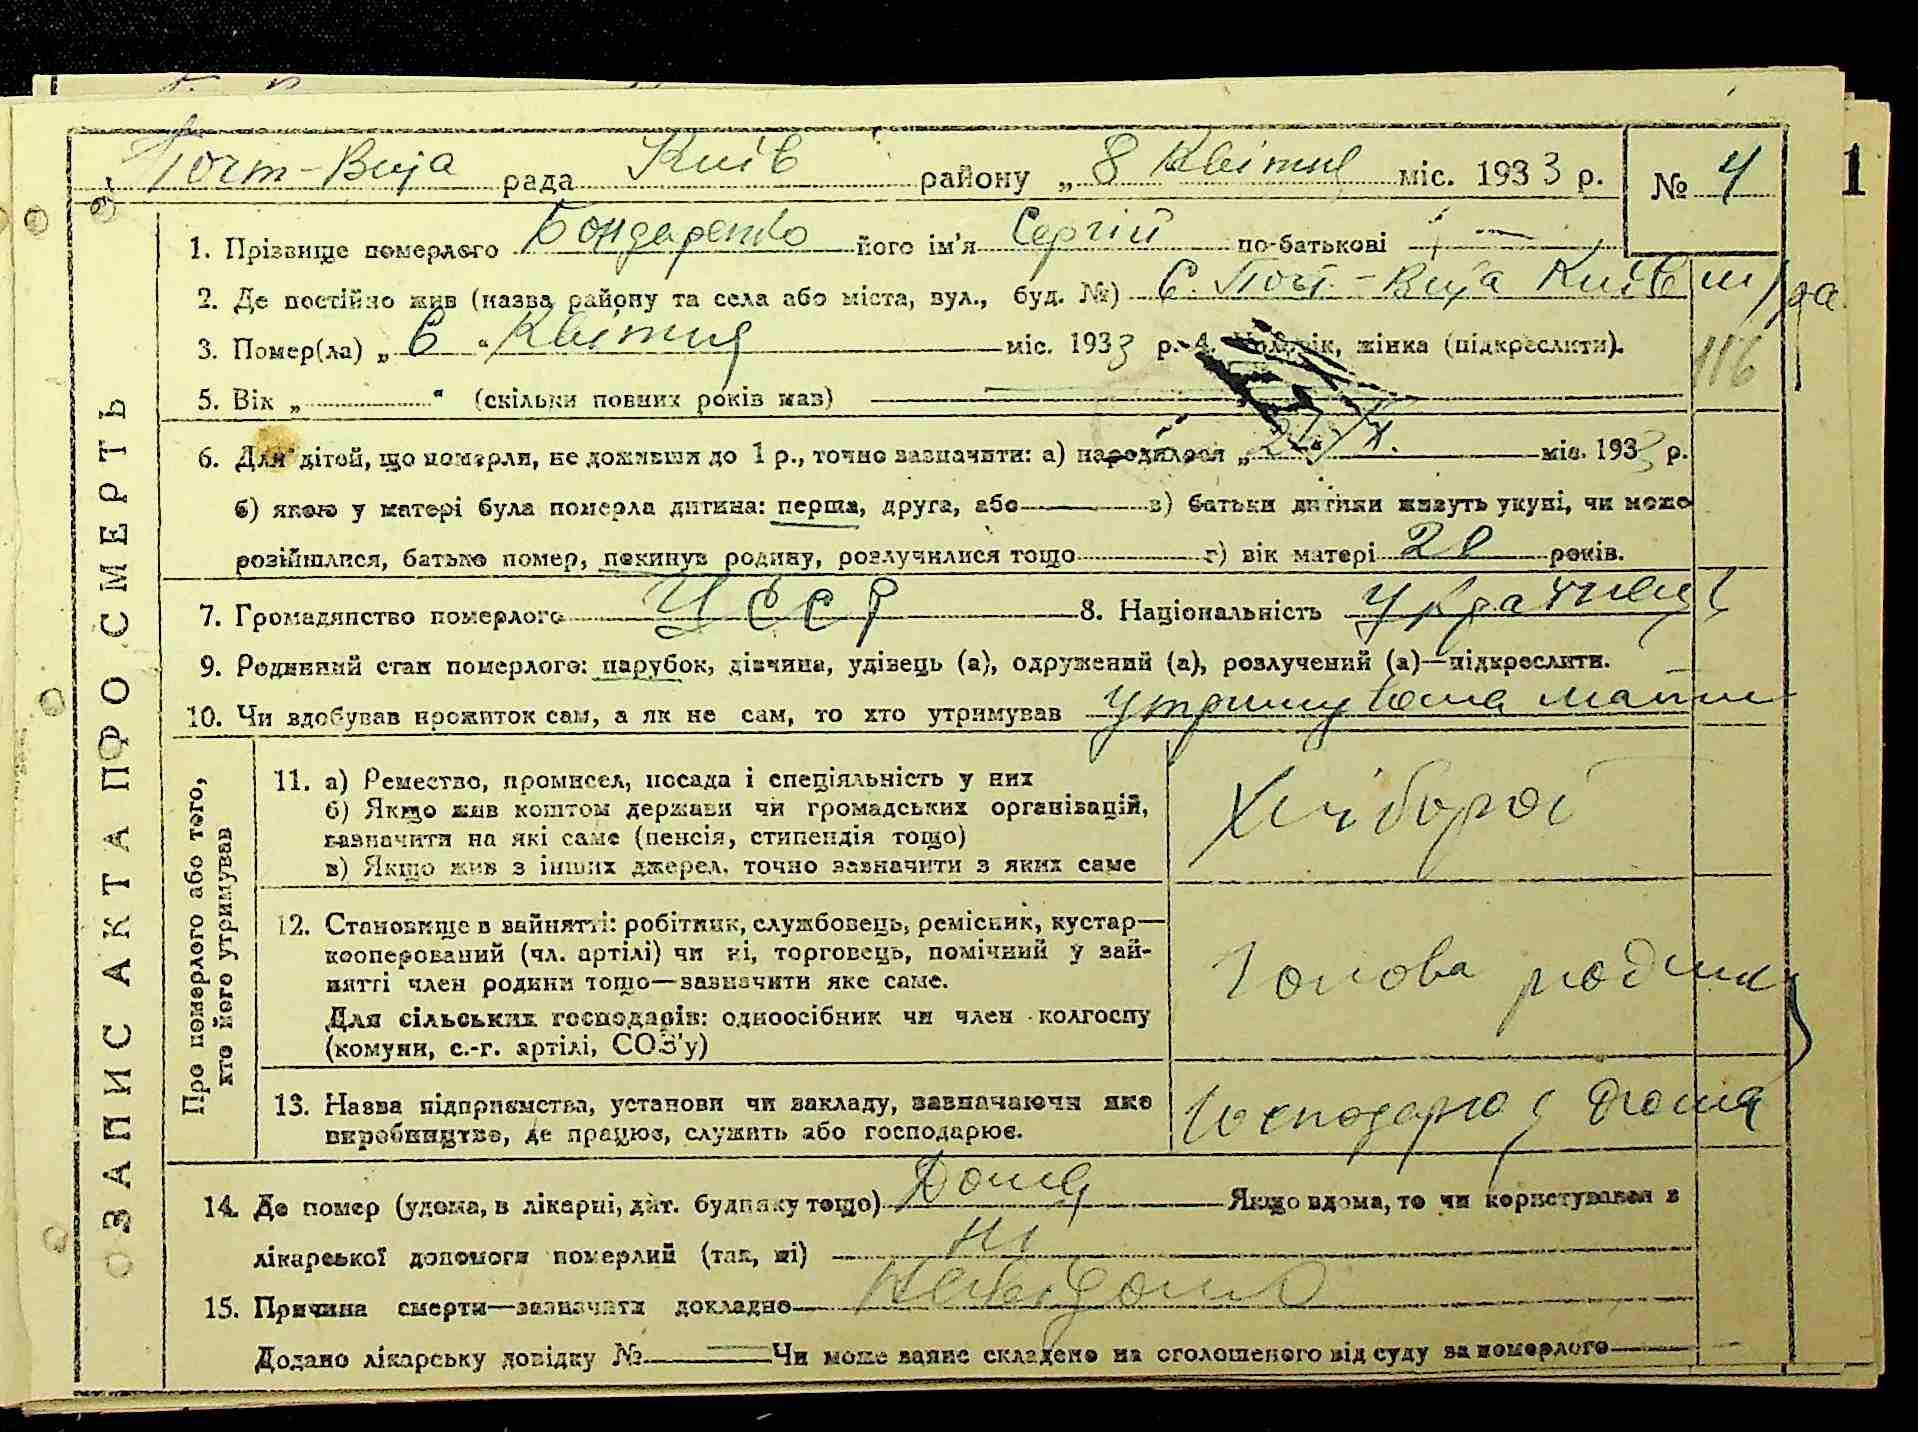 Пошт-Вија рада Київ району „ 8 Квітня міс. 1933 р. № 4
1
1. Прізвище померлого Бондаренко його ім'я Сергій по-батькові —
2. Де постійно жив (назва району та села або міста, вул., буд. №) С. Пошт.-Вија Київ
116
3. Помер(ла) „ 6 " Квітня міс. 1933 р. 4. Чоловік, жінка (підкреслити).
5. Вік „ " (скільки повних років мав)
6. Для дітей, що померли, не доживши до 1 р., точно зазначити: а) народилося „ 21/X. міс. 193 р.
б) якою у матері була померла дитина: перша, друга, або — в) батьки дитини живуть укупі, чи може
розійшлися, батько помер, покинув родину, розлучилися тощо г) вік матері 20 років.
7. Громадянство померлого УССР 8. Національність Українець
9. Родинний стан померлого: парубок, дівчина, удівець (а), одружений (а), розлучений (а)—підкреслити.
10. Чи здобував прожиток сам, а як не сам, то хто утримував Утримувала мати
ЗАПИС АКТА ПРО СМЕРТЬ
Про померлого або того, хто його утримував
11. а) Ремество, промисел, посада і спеціяльність у них
б) Якщо жив коштом держави чи громадських організацій,
зазначити на які саме (пенсія, стипендія тощо)
в) Якщо жив з інших джерел, точно зазначити з яких саме
Хлібороб
12. Становище в зайнятті: робітник, службовець, ремісник, кустар—
кооперований (чл. артілі) чи ні, торговець, помічний у зай-
нятті член родини тощо—зазначити яке саме.
Для сільських господарів: одноосібник чи член колгоспу
(комуни, с.-г. артілі, СОЗ'у)
Голова родини
13. Назва підприємства, установи чи закладу, зазначаючи яке
виробництво, де працює, служить або господарює.
Господарює дома
14. Де помер (удома, в лікарні, дит. будинку тощо) Дома Якщо вдома, то чи користувався з
лікарської допомоги померлий (так, ні) Ні
15. Причина смерти—зазначити докладно Невідомо
Додано лікарську довідку № — Чи може запис складено на оголошеного від суду за померлого —